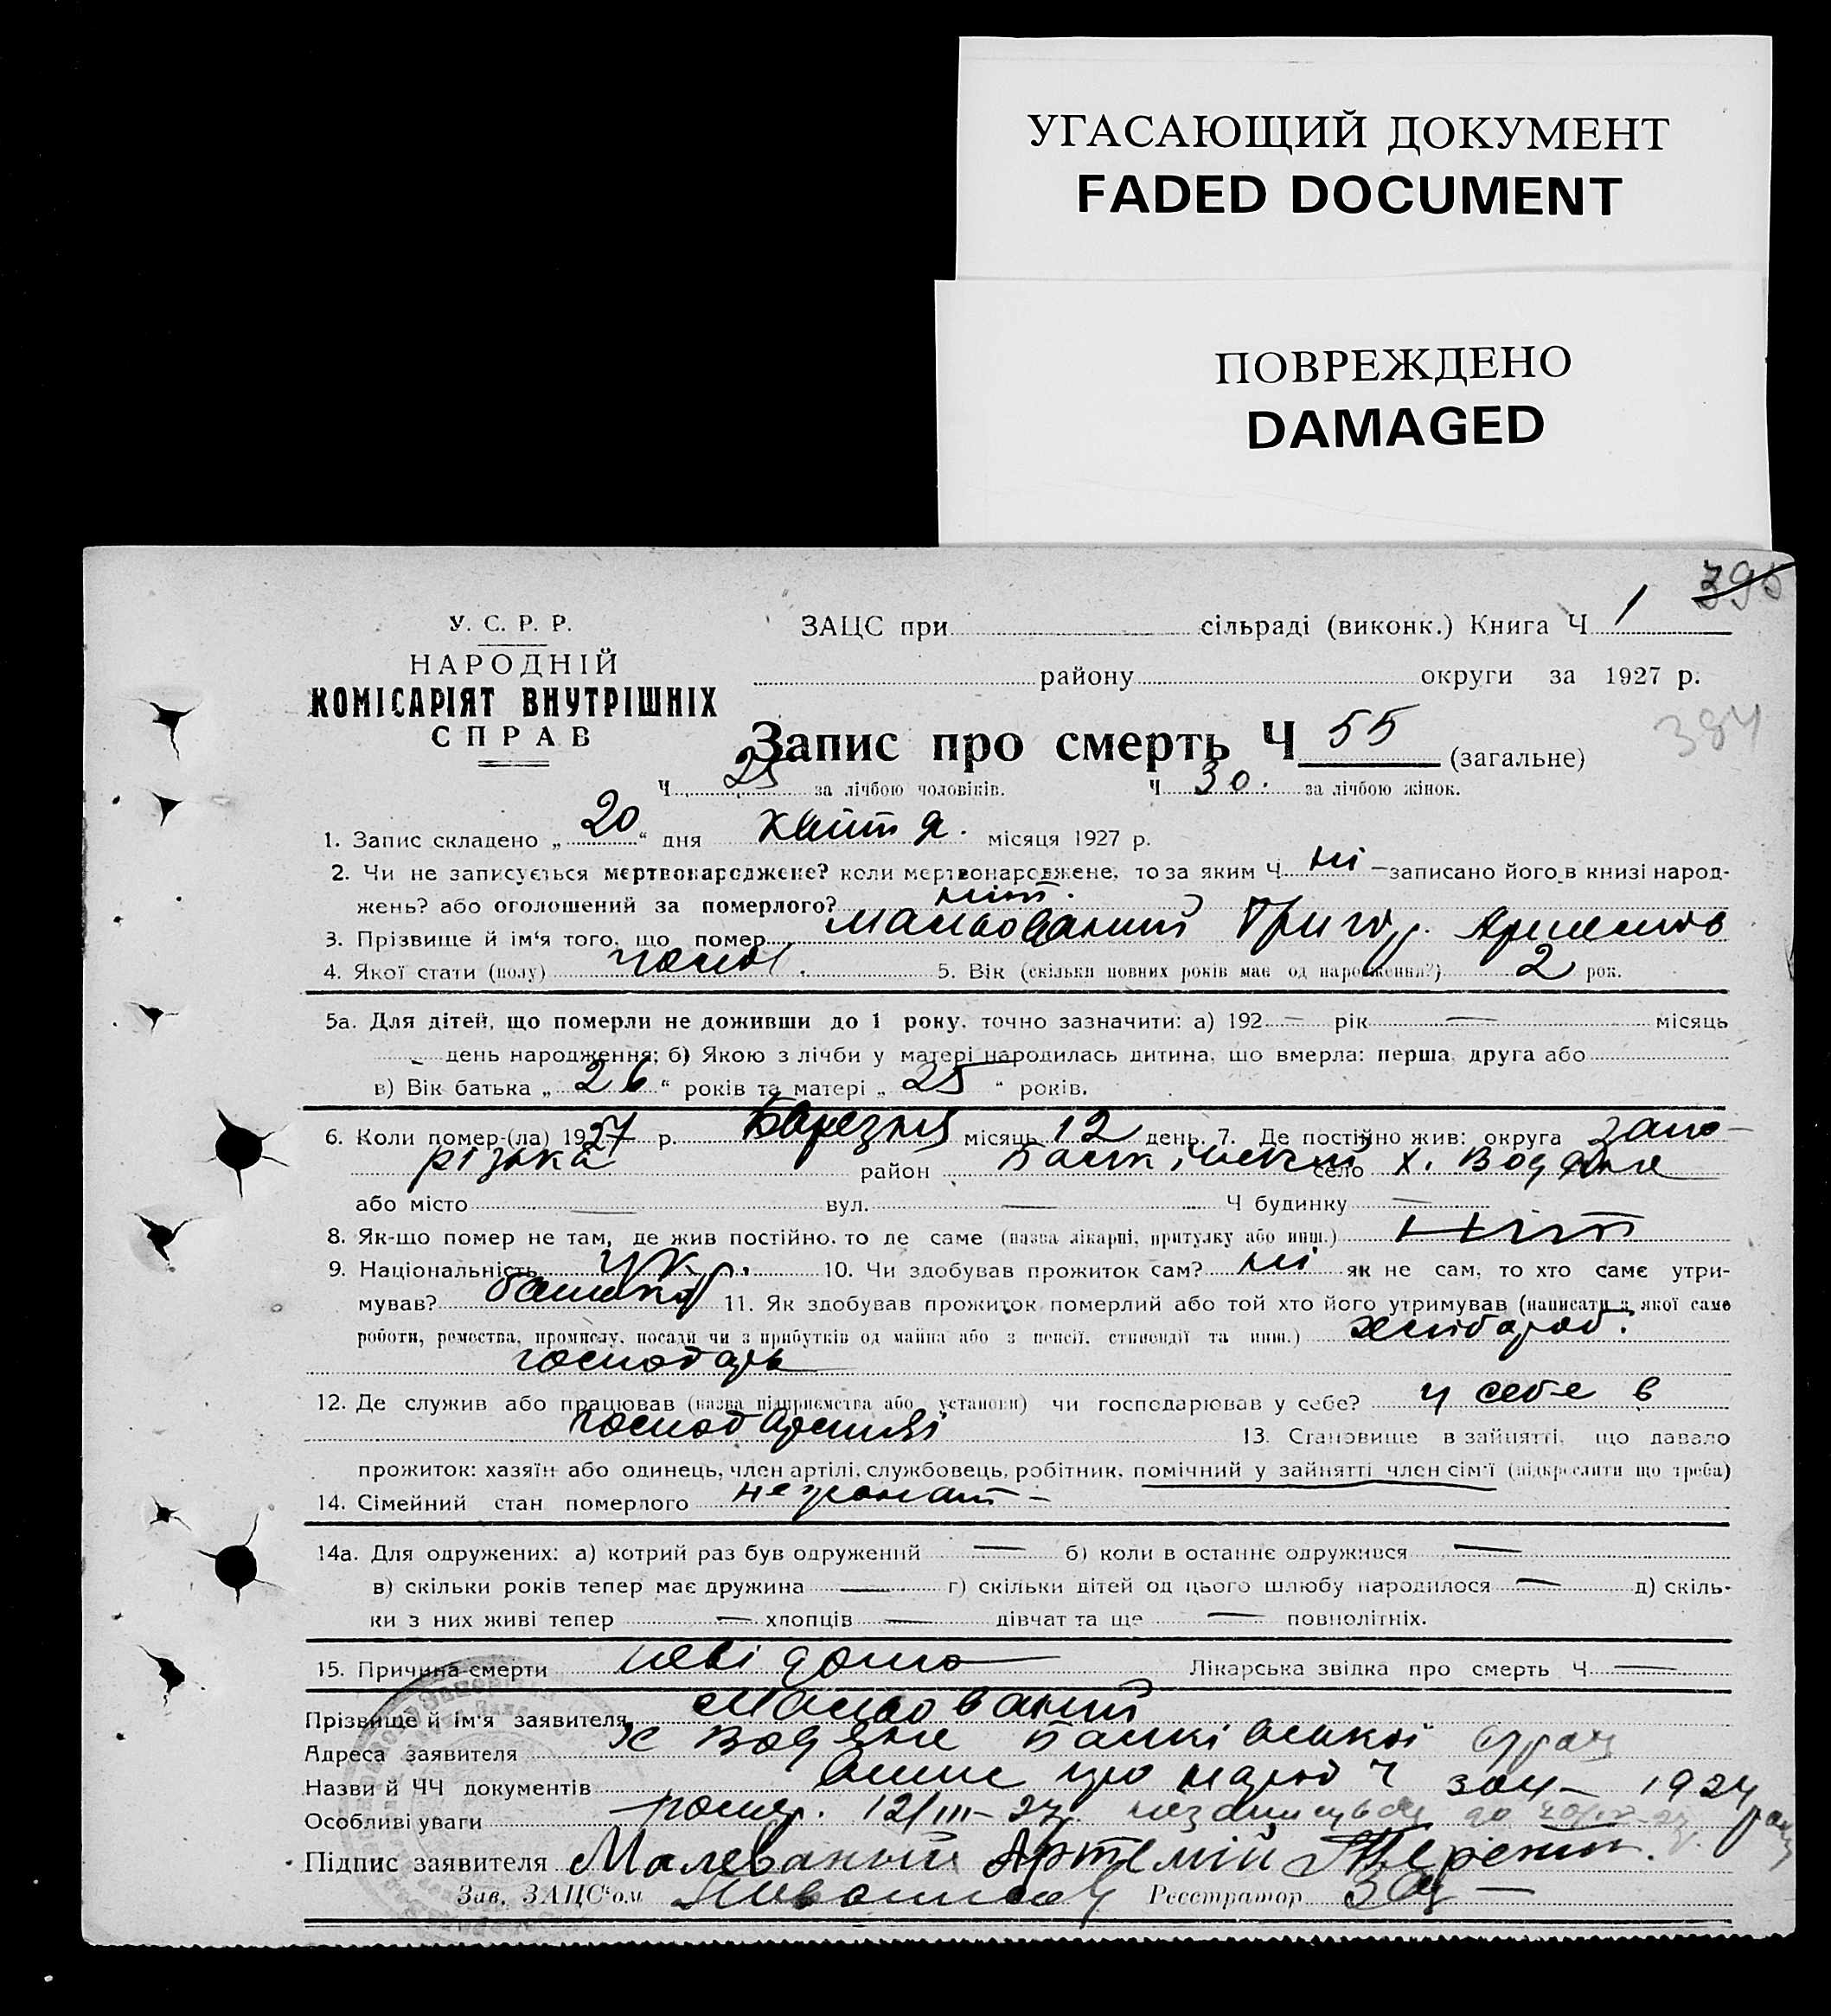 УГАСАЮЩИЙ ДОКУМЕНТ
FADED DOCUMENT
ПОВРЕЖДЕНО
DAMAGED
395
У. С. Р. Р.
НАРОДНІЙ
КОМІСАРІЯТ ВНУТРІШНІХ
СПРАВ
ЗАЦС при сільраді (виконк.) Книга Ч 1
району округи за 1927 р.
384
Запис про смерть Ч 55 (загальне)
Ч 25 за лічбою чоловіків. Ч 30. за лічбою жінок.
1. Запис складено „20“ дня квітня. місяця 1927 р.
2. Чи не записується мертвонароджене? коли мертвонароджене, то за яким Ч ні — записано його в книзі народ-
жень? або оголошений за померлого? ніт.
3. Прізвище й ім'я того, що помер Мальований Григор. Артемов
4. Якої стати (полу) чолов. 5. Вік (скільки повних років має од народження?) 2 рок.
5а. Для дітей, що померли не доживши до 1 року, точно зазначити: а) 192 — рік — місяць
— день народження; б) Якою з лічби у матері народилась дитина, що вмерла: перша, друга або
в) Вік батька „26“ років та матері „25“ років.
6. Коли помер-(ла) 1927 р. Березня місяць 12 день. 7. Де постійно жив: округа Запо-
різька район село х. Водяне
або місто — вул. — Ч будинку —
8. Як-що помер не там, де жив постійно, то де саме (назва лікарні, притулку або инш.) Ніт
9. Національність укр. 10. Чи здобував прожиток сам? ні як не сам, то хто саме утри-
мував? батько 11. Як здобував прожиток померлий або той хто його утримував (написати з якої саме
роботи, ремества, промислу, посади чи з прибутків од майна або з пенсії, стипендії та инш.) хлібороб.
господарь
12. Де служив або працював (назва підприємства або установи) чи господарював у себе? у себе в
господарстві 13. Становище в зайнятті, що давало
прожиток: хазяїн або одинець, член артілі, службовець, робітник, помічний у зайнятті член сім'ї (підкреслити що треба)
14. Сімейний стан померлого нежонат —
14а. Для одружених: а) котрий раз був одружений — б) коли в останнє одружився —
в) скільки років тепер має дружина — г) скільки дітей од цього шлюбу народилося — д) скіль-
ки з них живі тепер — хлопців — дівчат та ще — повнолітніх.
15. Причина смерти невідомо Лікарська звідка про смерть Ч —
Прізвище й ім'я заявителя Мальований
Адреса заявителя х Водяне
Назви й ЧЧ документів про народ Ч 1924
Особливі уваги помер. 12/III-27.
Підпис заявителя Малеваний Артемій
Зав. ЗАЦС'ом Реєстратор